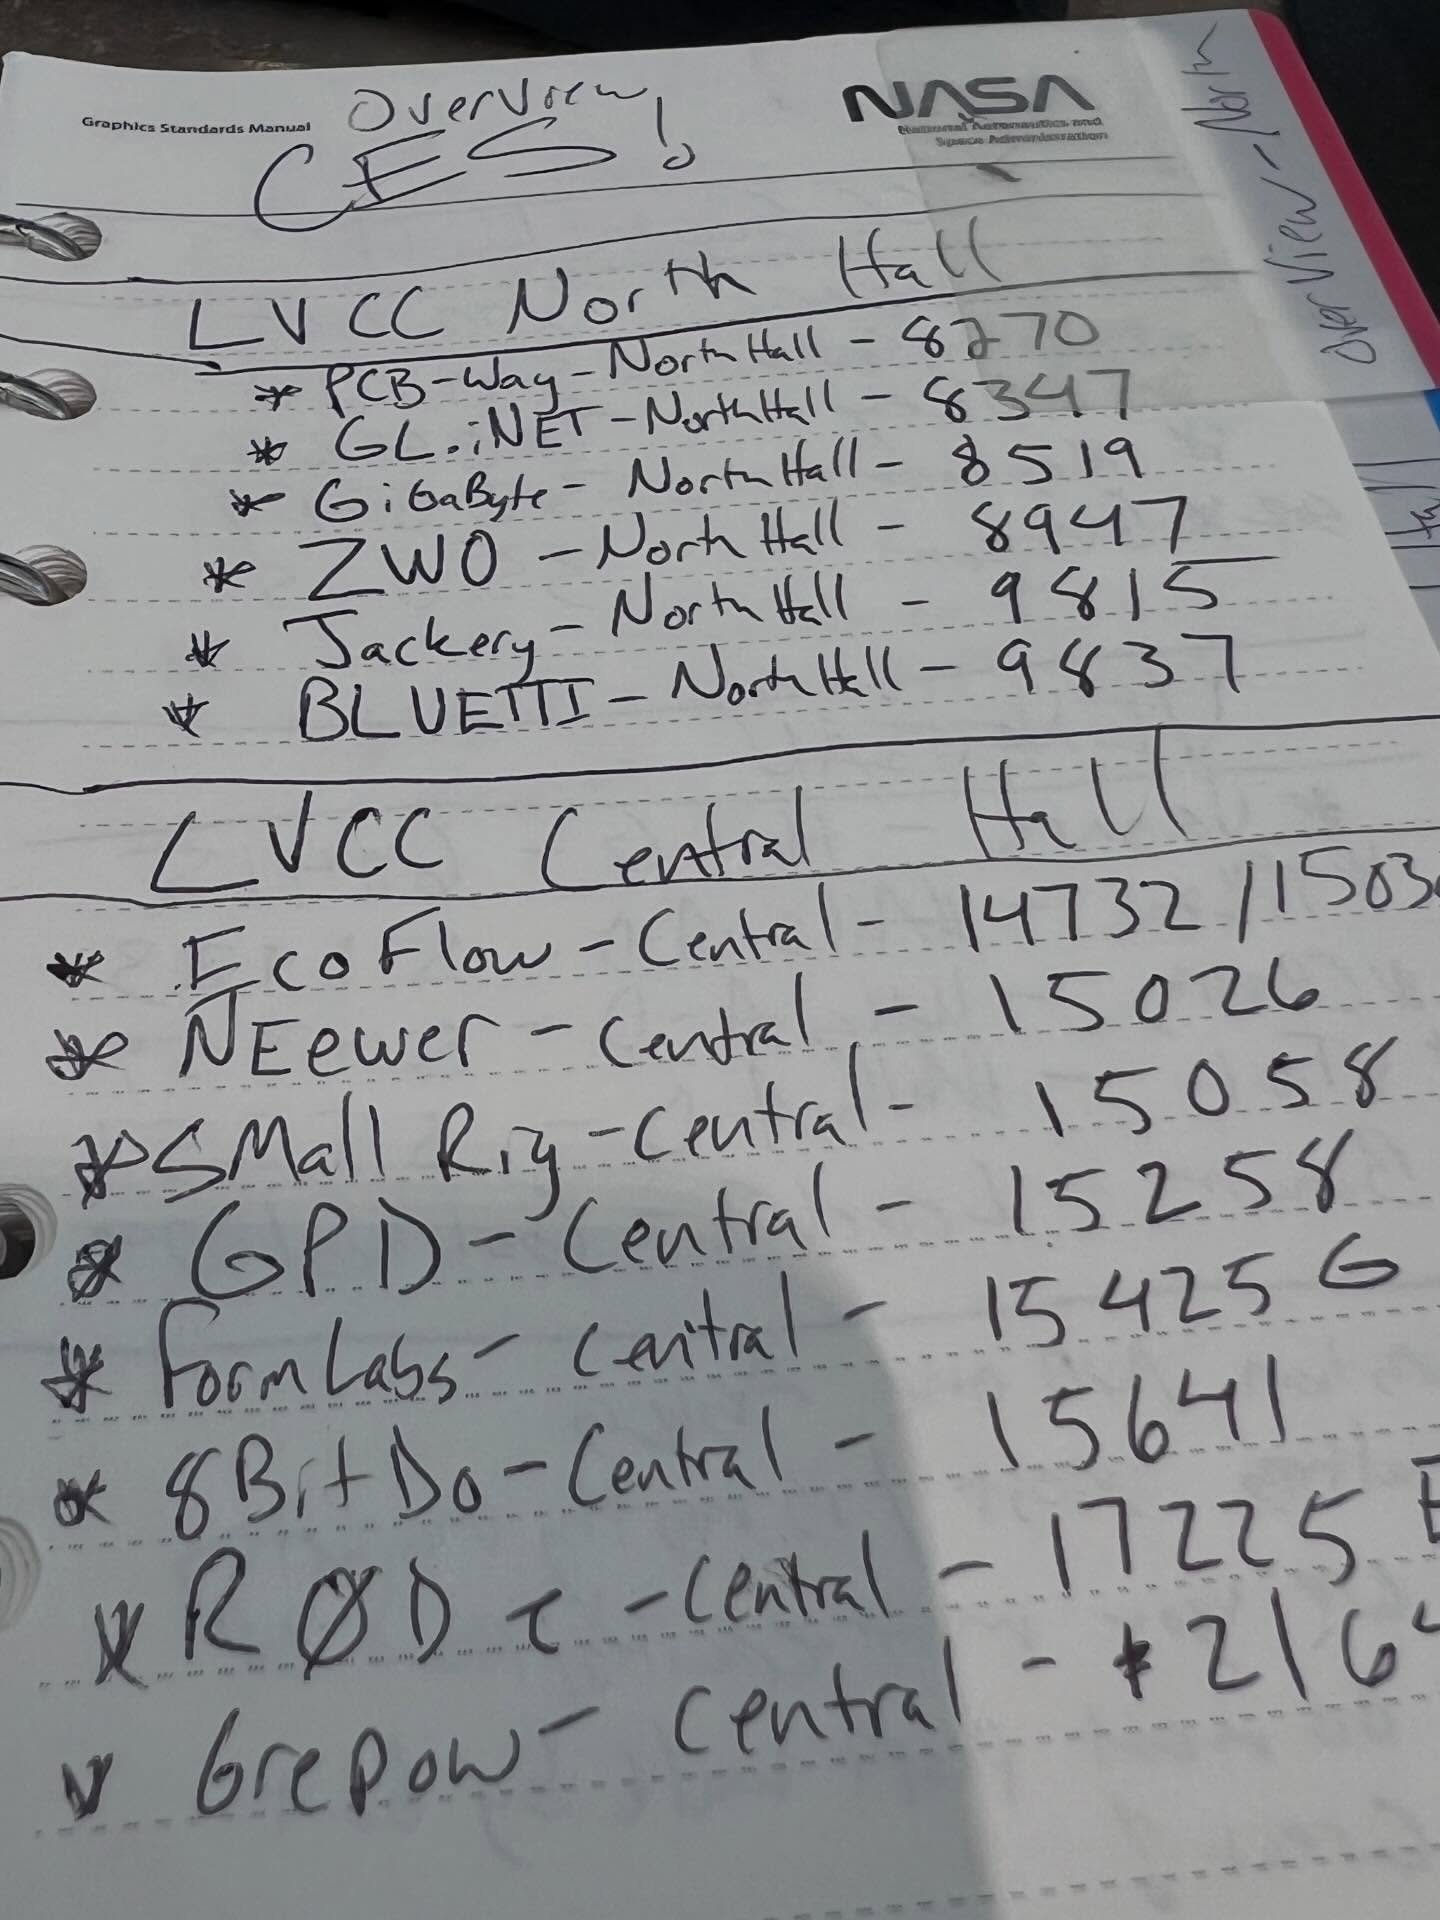 Overview
Graphics Standards Manual
CES!
NASA
National Aeronautics and
Space Administration
Over View - North
LVCC North Hall
* PCB-Way - North Hall - 8270
* GL.iNET - North Hall - 8347
* GiGaByte - North Hall - 8519
* ZWO - North Hall - 8947
* Jackery - North Hall - 9815
* BLUETTI - North Hall - 9837
LVCC Central Hall
* EcoFlow - Central - 14732 / 1503
* NEewer - Central - 15026
* SMall Rig - Central - 15058
* GPD - Central - 15258
* FormLabs - Central - 15425 G
* 8BitDo - Central - 15641
* RØDe - Central - 17225
* Grepow - Central - 216